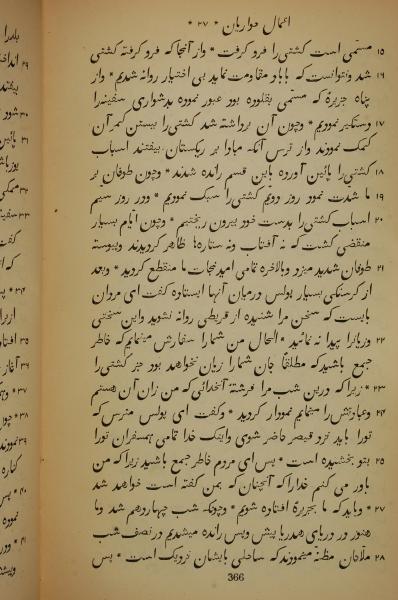 اعمال حواریان * ۲۷ *
۱۵ مسمّی است کشتی را فرو گرفت * و از آنجا که فرو گرفته کشتی
۱۶ شد و نتوانست که با باد مقاومت نماید بی اختیار روانه شدیم * و از
پناه جزیرهٔ که مسمّی بقلوده بود عبور نموده بدشواری سفینه را
۱۷ دستگیر نمودیم * و چون آن برداشته شد کشتی را ببستن کمر آن
کمک نمودند و از ترس آنکه مبادا بر ریکستان بیفتند اسباب
۱۸ کشتی را پائین آورده باین قسم رانده شدند * و چون طوفان بر
۱۹ ما شدت نمود روز دویم کشتی را سبک نمودیم * و در روز سیم
۲۰ اسباب کشتی را بدست خود بیرون ریختیم * و چون ایام بسیار
منقضی گشت که نه آفتاب و نه ستاره‌ها ظاهر گردیدند و پیوسته
۲۱ طوفان شدید میزد و بالاخره تمامی امید نجات ما منقطع گردید * و بعد
از گرسنکی بسیار پولس درمیان آنها ایستاده گفت ای مردان
بایست که سخن مرا شنیده از قریطی روانه نشوید و این سختی
۲۲ و زیانرا پیدا نه نمائید * الحال من شما را سفارش مینمایم که خاطر
جمع باشید که مطلقاً جان شما را زیان نخواهد بود جز کشتی را
۲۳ * زیرا که درین شب مرا فرشتهٔ آنخدائی که من زان آن هستم
۲۴ و عبادتش را مینمایم نمودار گردید * و گفت ای پولس مترس که
ترا باید نزد قیصر حاضر شوی و اینک خدا تمامی همسفران ترا
۲۵ بتو بخشیده است * پس ای مردم خاطر جمع باشید زیرا که من
باور می کنم خدا را که آنچنان که بمن گفته است خواهد شد
۲۷ * و باید که ما بجزیرهٔ افتاده شویم * و چونکه شب چهاردهم شد و ما
هنوز در دریای هدریا پیش و پس رانده میشدیم در نصف شب
۲۸ ملاحان مظنّه مینمودند که ساحلی بایشان نزدیک است * پس
366